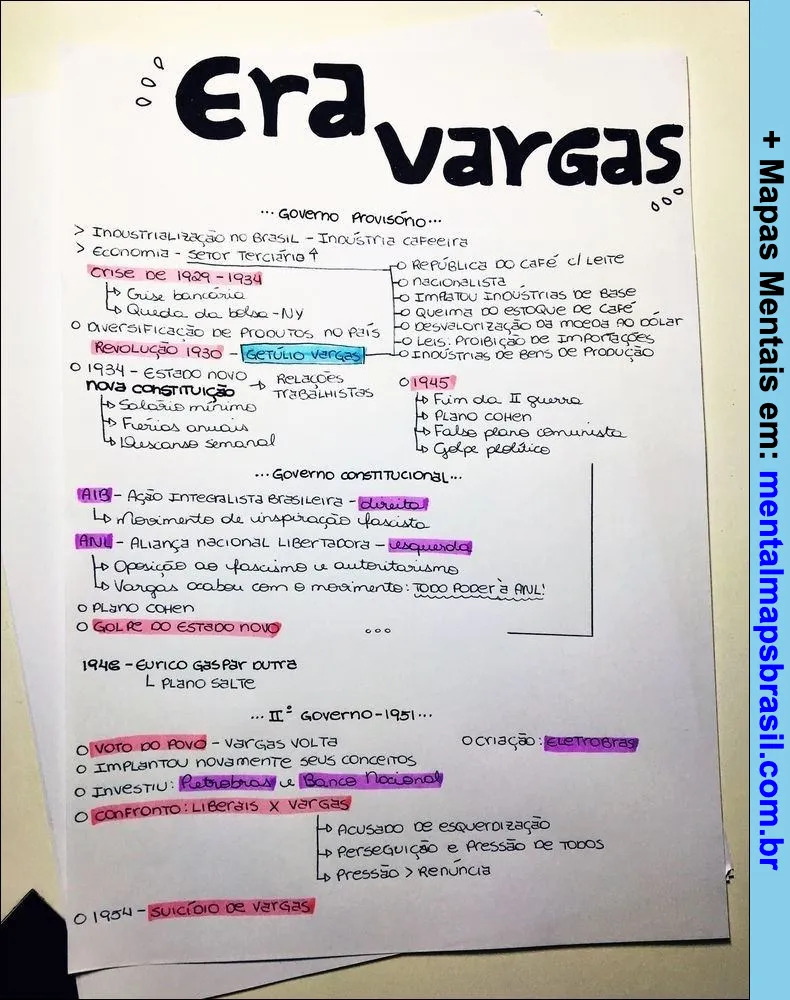 Era
Vargas
...Governo Provisório...
> Industrialização no Brasil - Indústria cafeeira
> Economia - Setor Terciário ↑
Crise de 1929-1934
↳ Crise bancária
↳ Queda da bolsa - NY
o Diversificação de produtos no país
Revolução 1930 - Getúlio Vargas
o República do café c/ leite
o Nacionalista
o Implatou indústrias de base
o Queima do estoque de café
o Desvalorização da moeda ao dólar
o Leis: Proibição de importações
o Indústrias de bens de produção
o 1934 - Estado novo
nova constituição → Relações trabalhistas
↳ Salário mínimo
↳ Fierias anuais
↳ Descanso semanal
o 1945
↳ Fim da II guerra
↳ Plano Cohen
↳ Falso plano comunista
↳ Golpe político
...Governo constitucional...
AIB - Ação Integralista Brasileira - direita
↳ Movimento de inspiração fascista
ANL - Aliança nacional Libertadora - esquerda
↳ Oposição ao fascismo e autoritarismo
↳ Vargas acabou com o movimento: TODO PODER à ANL!
o Plano Cohen
o Golpe do Estado novo
ooo
1946 - Eurico Gaspar Dutra
└ Plano Salte
... IIº Governo - 1951...
o Voto do povo - Vargas volta
o criação: Eletrobras
o Implantou novamente seus conceitos
o Investiu: Petrobras e Banco Nacional
o confronto: Liberais x Vargas
↳ Acusado de esquerdização
↳ Perseguição e pressão de todos
↳ Pressão > Renúncia
o 1954 - Suicídio de Vargas
+ Mapas Mentais em: mentalmapsbrasil.com.br